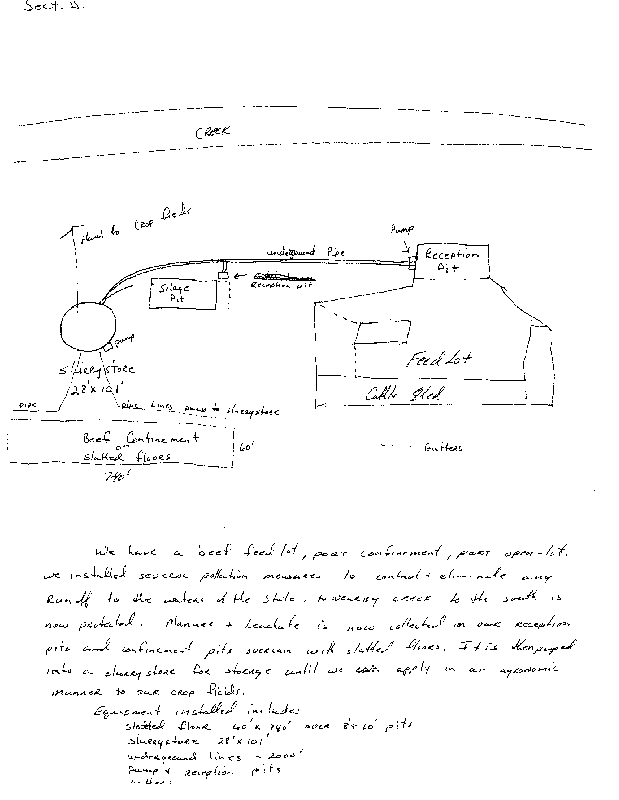 Sect. D.
CREEK
Haul to Crop fields
underground Pipe
Pump
Reception
Pit
Silage
Pit
Reception pit
pump
Slurrystore
28'x101'
Feed Lot
Cattle Shed
pipe
pipe lines pump to slurrystore
Beef Confinement
on
slatted floors
60'
240'
Gutters
We have a beef feed lot, part confinement, part open-lot.
we installed several pollution measures to control + eliminate any
Runoff to the waters of the State. creek to the south is
now protected. Manure + Leachate is now collected in our reception
pits and confinement pits with slatted floors. It is then pumped
into a slurrystore for storage until we can apply in an agronomic
manner to our crop fields.
Equipment installed includes
slatted floor 40' x 240' over 8' x 10' pits
slurrystore 28' x 101'
underground lines - 2000'
Pump + reception pits